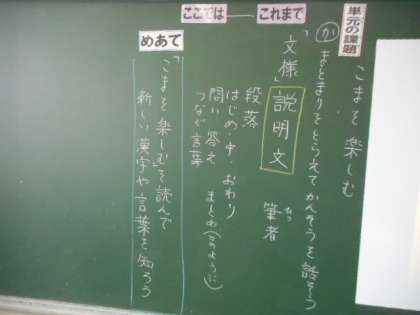 こまを楽しむ
単元の課題
か まとまりをとらえてかんそうを話そう
これまで
「文様」説明文
筆者
ひっ
段落
はじめ・中・おわり
問い 答え まとめ(このように)
つなぐ言葉
ここでは
めあて
「こまを楽しむを読んで
新しい漢字や言葉を知ろう